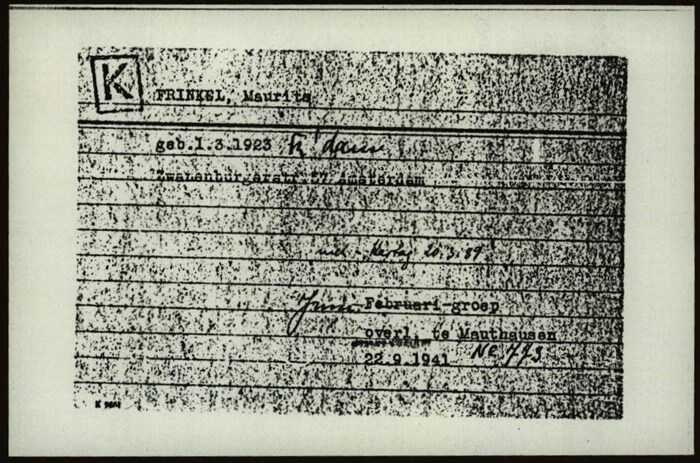 K
FRINKEL, Maurits
geb.1.3.1923 A'dam
Zwanenburgerstr. Amsterdam
20.3.
Februari-groep
overl. te Mauthausen
22.9 1941 No 773